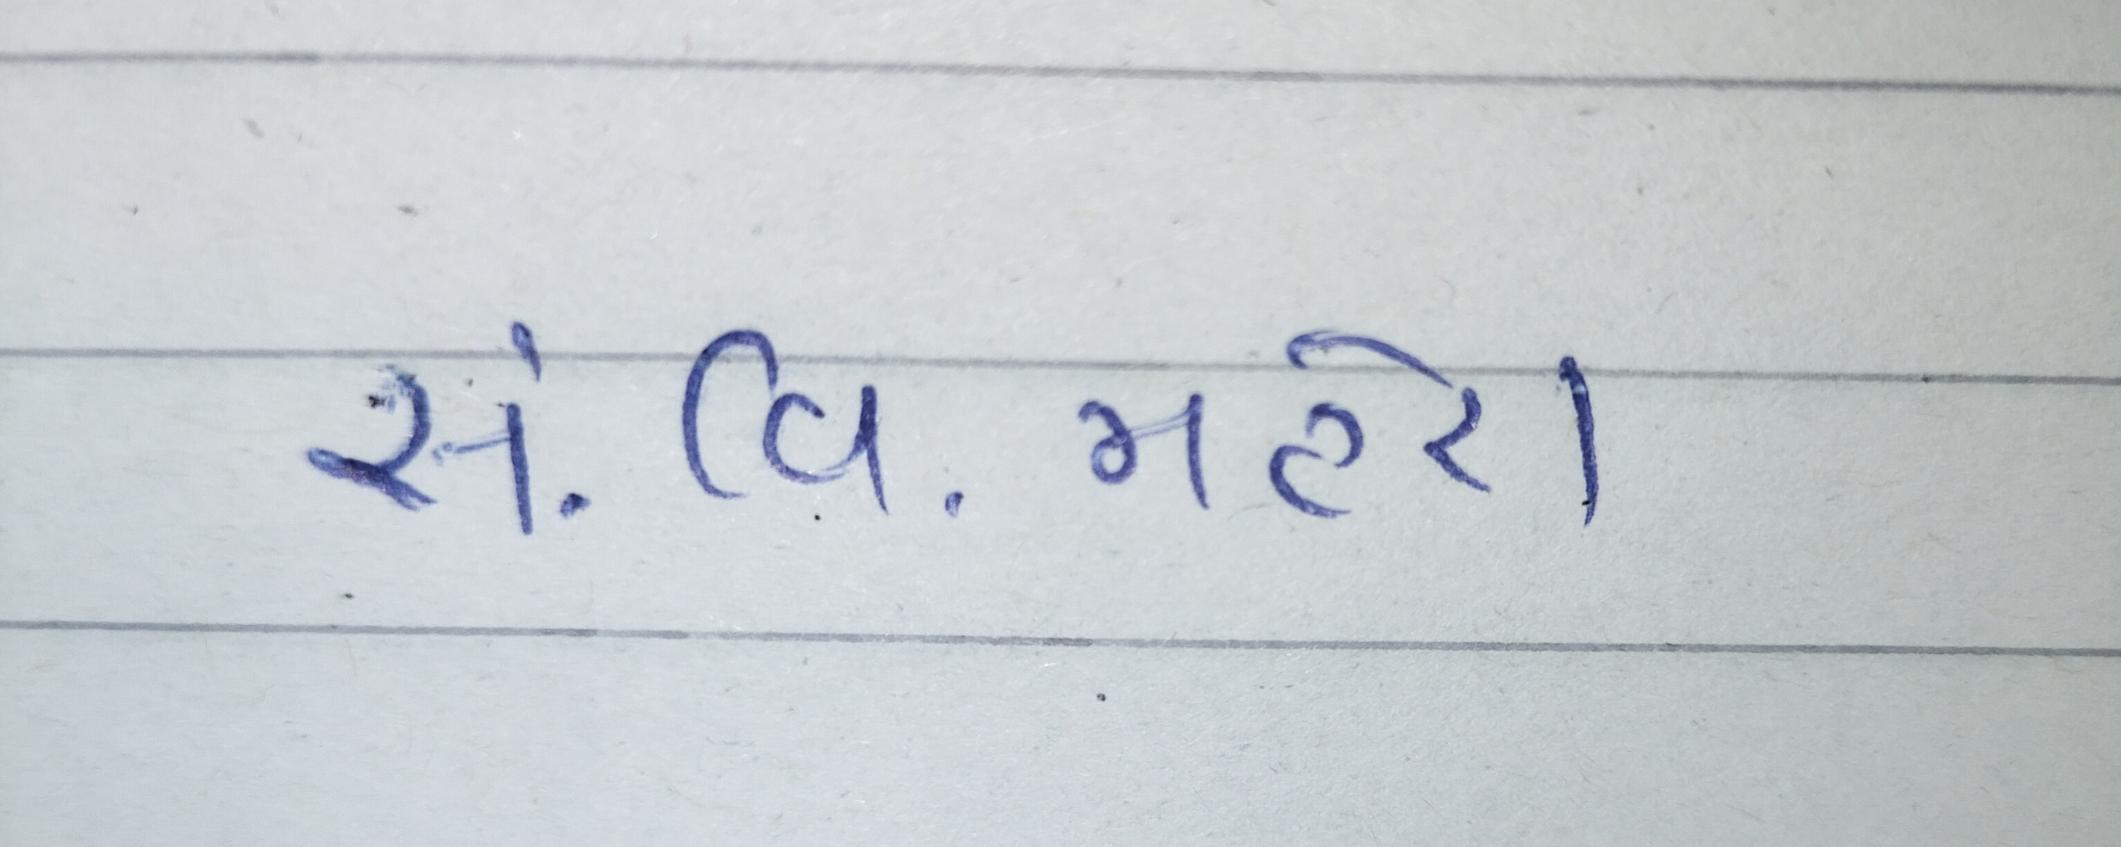 સં. વિ. મહેરા